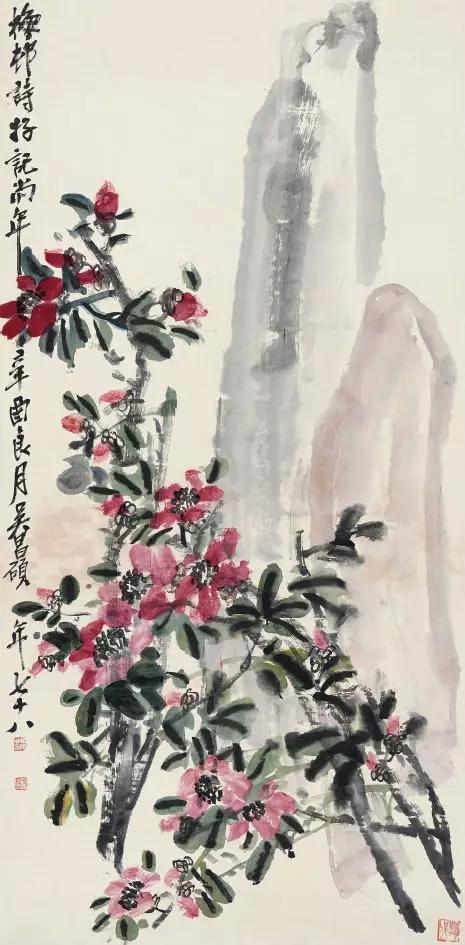 梅邨詩格記當年 辛酉良月吳昌碩年七十八